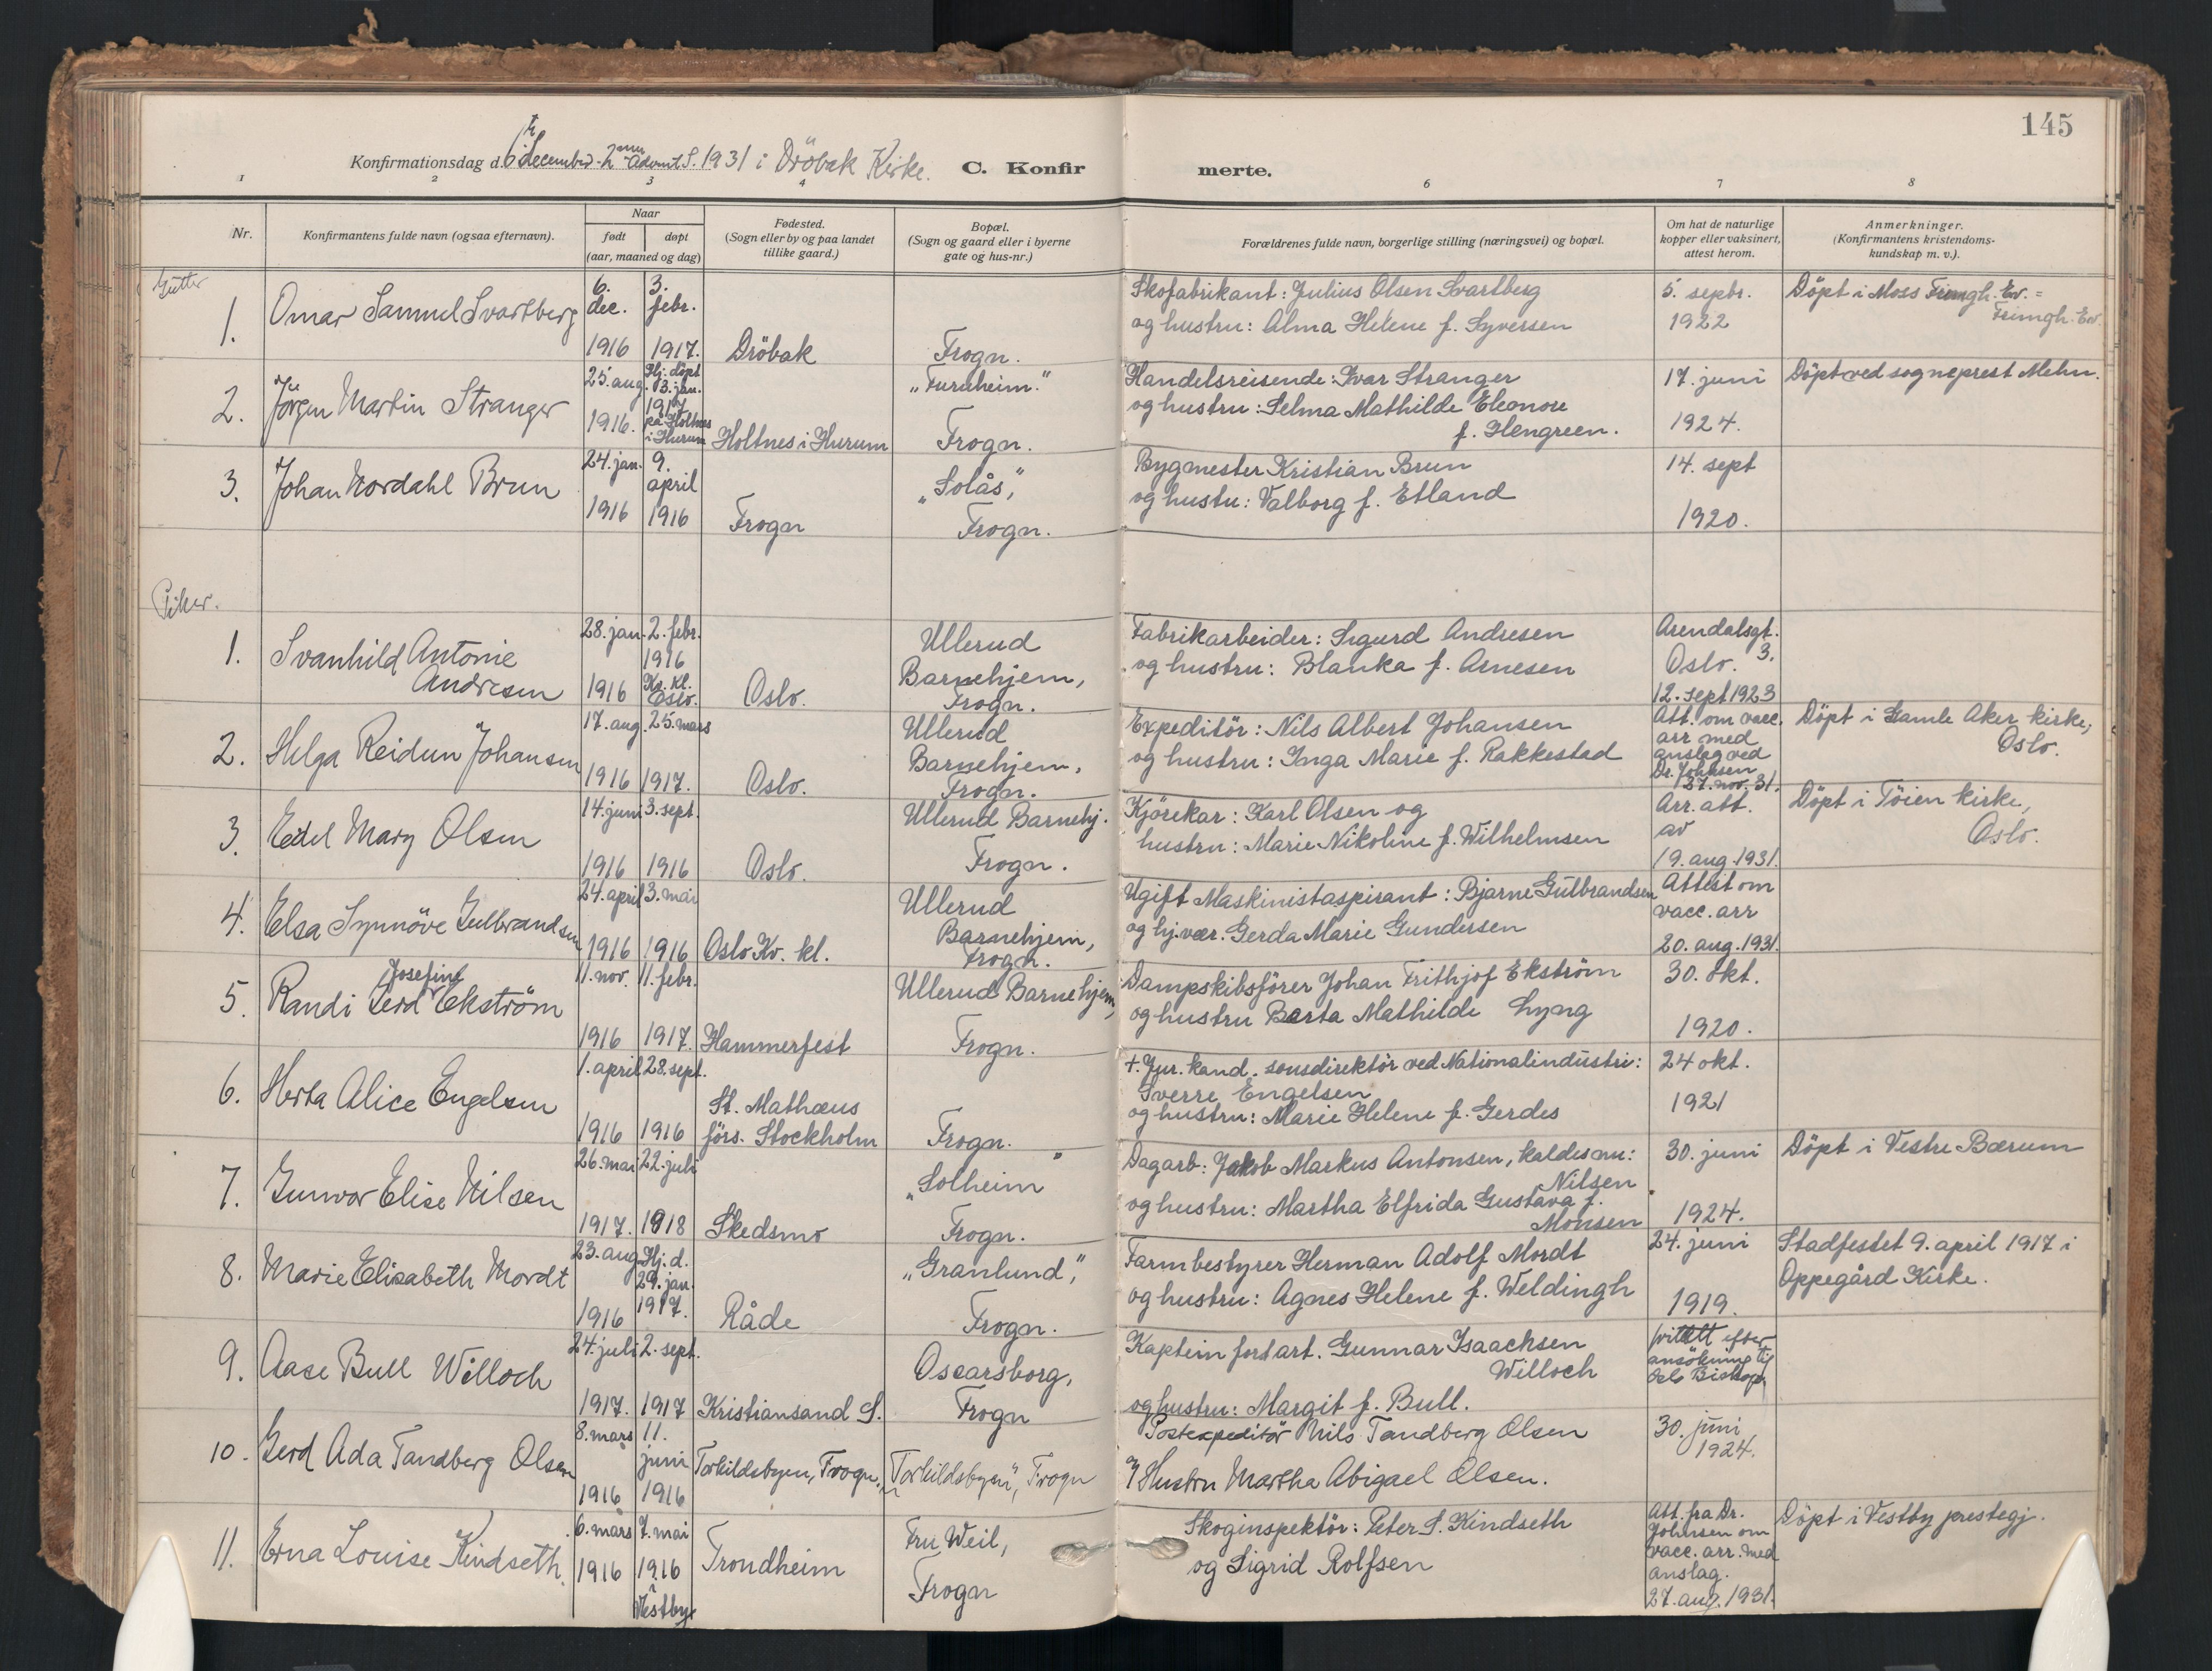 145
Konfirmationsdag d. 6te december - 2nen Advent S. 1931 i Dröbak Kirke. C. Konfirmerte.
1 2 3 4 6 7 8
Nr.
Konfirmantens fulde navn (ogsaa efternavn).
Naar
født
døpt
(aar, maaned og dag)
Fødested.
(Sogn eller by og paa landet
tillike gaard.)
Bopæl.
(Sogn og gaard eller i byerne
gate og hus-nr.)
Forældrenes fulde navn, borgerlige stilling (næringsvei) og bopæl.
Om hat de naturlige
kopper eller vaksinert,
attest herom.
Anmerkninger.
(Konfirmantens kristendoms-
kundskap m. v.).
Gutter
1.
Omar Samuel Svartberg
6.
dec.
1916
3.
febr.
1917.
Dröbak
Frogn.
Skofabrikant: Julius Olsen Svartberg
og hustru: Alma Helene f. Syversen
5. septr.
1922
Döpt i Moss Frimgh. Ev. =
Frimgh. Ev.
2.
Jörgen Martin Stranger
25. aug.
1916.
Hj. döpt
13. jan.
1917
på Holtnes
i Hurum
Holtnes i Hurum
„Furuheim."
Frogn.
Handelsreisende: Ivar Stranger
og hustru: Selma Mathilde Eleonore
f. Hengreen.
17. juni
1924.
Döpt ved sogneprest Mehn.
3.
Johan Nordahl Brun
24. jan.
1916
9.
april
1916
Frogn
„Solås",
Frogn.
Bygmester Kristian Brun
og hustu: Valborg f. Etland
14. sept
1920.
Piker.
1.
Svanhild Antonie
Andresen
28. jan.
1916
2. febr.
1916
Kv. kl.
Oslo.
Oslo.
Ullerud
Barnehjem,
Frogn.
Fabrikarbeider: Sigurd Andresen
og hustru: Blanka f. Arnesen
Arendalsgt.
Oslo. 3.
12. sept 1923
2.
Helga Reidun Johansen
17. aug.
1916
25. mars
1917.
Oslo.
Ullerud
Barnehjem,
Frogn.
Expeditör: Nils Albert Johansen
og hustru: Inga Marie f. Rakkestad
Att. om vacc.
arr med
anslag ved
Dr. Johnsen
27. nov. 31.
Döpt i Gamle Aker kirke,
Oslo.
3.
Edel Mary Olsen
14. juni
1916
3. sept.
1916
Oslo.
Ullerud Barnehj.
Frogn.
Kjörekar: Karl Olsen og
hustru: Marie Nikoline f. Wilhelmsen
Arr. att.
av
19. aug. 1931.
Döpt i Töien kirke,
Oslo.
4.
Elsa Synnöve Gulbrandsen
24. april
1916
3. mai
1916
Oslo Kv. kl.
Ullerud
Barnehjem,
Frogn.
Ugift Maskinistaspirant: Bjarne Gulbrandsen
og hj.vær. Gerda Marie Gundersen
Attest om
vacc. arr
20. aug. 1931.
5.
Josefine
Randi Gerd Ekström
11. nov.
1916
11. febr.
1917.
Hammerfest
Ullerud Barnehjem,
Frogn.
Dampskibsförer Johan Frithjof Ekström
og hustru Berta Mathilde Lyng
30. okt.
1920.
6.
Herta Alice Engelsen
1. april
1916
28. sept.
1916
St. Mathæus
förs. Stockholm
Frogn.
+. Jur. kand. sousdirektör ved Nationalindustri:
Sverre Engelsen
og hustru: Marie Helene f. Gerdes
24 okt.
1921
7.
Gunvor Elise Nilsen
26. mai
1917.
22. juli
1918
Skedsmo
„Solheim"
Frogn.
Dagarb: Jakob Markus Antonsen, kaldes nu:
Nilsen.
og hustru: Martha Elfrida Gustava f.
Monsen
30. juni
1924.
Döpt i Vestre Bærum
8.
Marie Elisabeth Mordt
23. aug.
1916
Hj. d.
29. jan.
1917.
Råde
„Granlund",
Frogn.
Farmbestyrer Herman Adolf Mordt
og hustru: Agnes Helene f. Weldingh
24. juni
1919.
Stadfestet 9. april 1917 i
Oppegård Kirke.
9.
Aase Bull Willoch
24. juli
1917.
2. sept.
1917
Kristiansand S.
Oscarsborg,
Frogn
Kaptein fort art. Gunnar Isaachsen
Willoch
og hustru: Margit f. Bull.
fritatt efter
ansökning til
Oslo Biskop
10.
Gerd Ada Tandberg Olsen
8. mars
1916
11.
juni
1916
Torkildsbyen, Frogn.
„Torkildsbyen", Frogn
Postexpeditör Nils Tandberg Olsen
og Hustru Martha Abigael Olsen.
30. juni
1924.
11.
Erna Louise Kindseth.
6. mars
1916
7. mai
1916
i
Vestby
Trondheim
Fru Weil,
Frogn
Skoginspektör: Peter S. Kindseth
og Sigrid Rolfsen
Att. fra Dr.
Johnsen om
vacc. arr. med
anslag.
27. aug. 1931.
Döpt i Vestby prestegj.